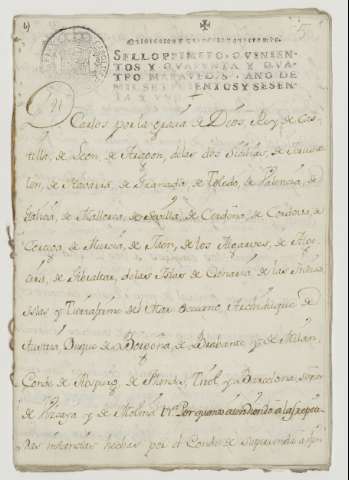 SELLO PRIMERO, QVINIEN-
TOS Y QUARENTA Y QUA-
TRO MARAVEDIS, AÑO DE
MIL SETECIENTOS Y SESEN-
TA Y
Dn. Carlos por la gracia de Dios, Rey de Cas-
tilla, de Leon, de Aragon, delas dos Sicilias, de Jerusa-
len, de Navarra, de Granada, de Toledo, de Valencia, de
Galicia, de Mallorca, de Sevilla, de Cerdeña, de Cordova, de
Corcega, de Murcia, de Jaen, de los Algarves, de Alge-
cira, de Gibraltar, delas Islas de Canaria, de las Indias,
Islas y Tierrafirme del Mar Occeano, Archiduque de
Austria, Duque de Borgoña, de Brabante y de Milan,
Conde de Abspurg, de Flandes, Tirol y Barcelona, Señor
de Vizcaya y de Molina Por quanto atendiendo a las repeti-
das instancias hechas por el Conde de